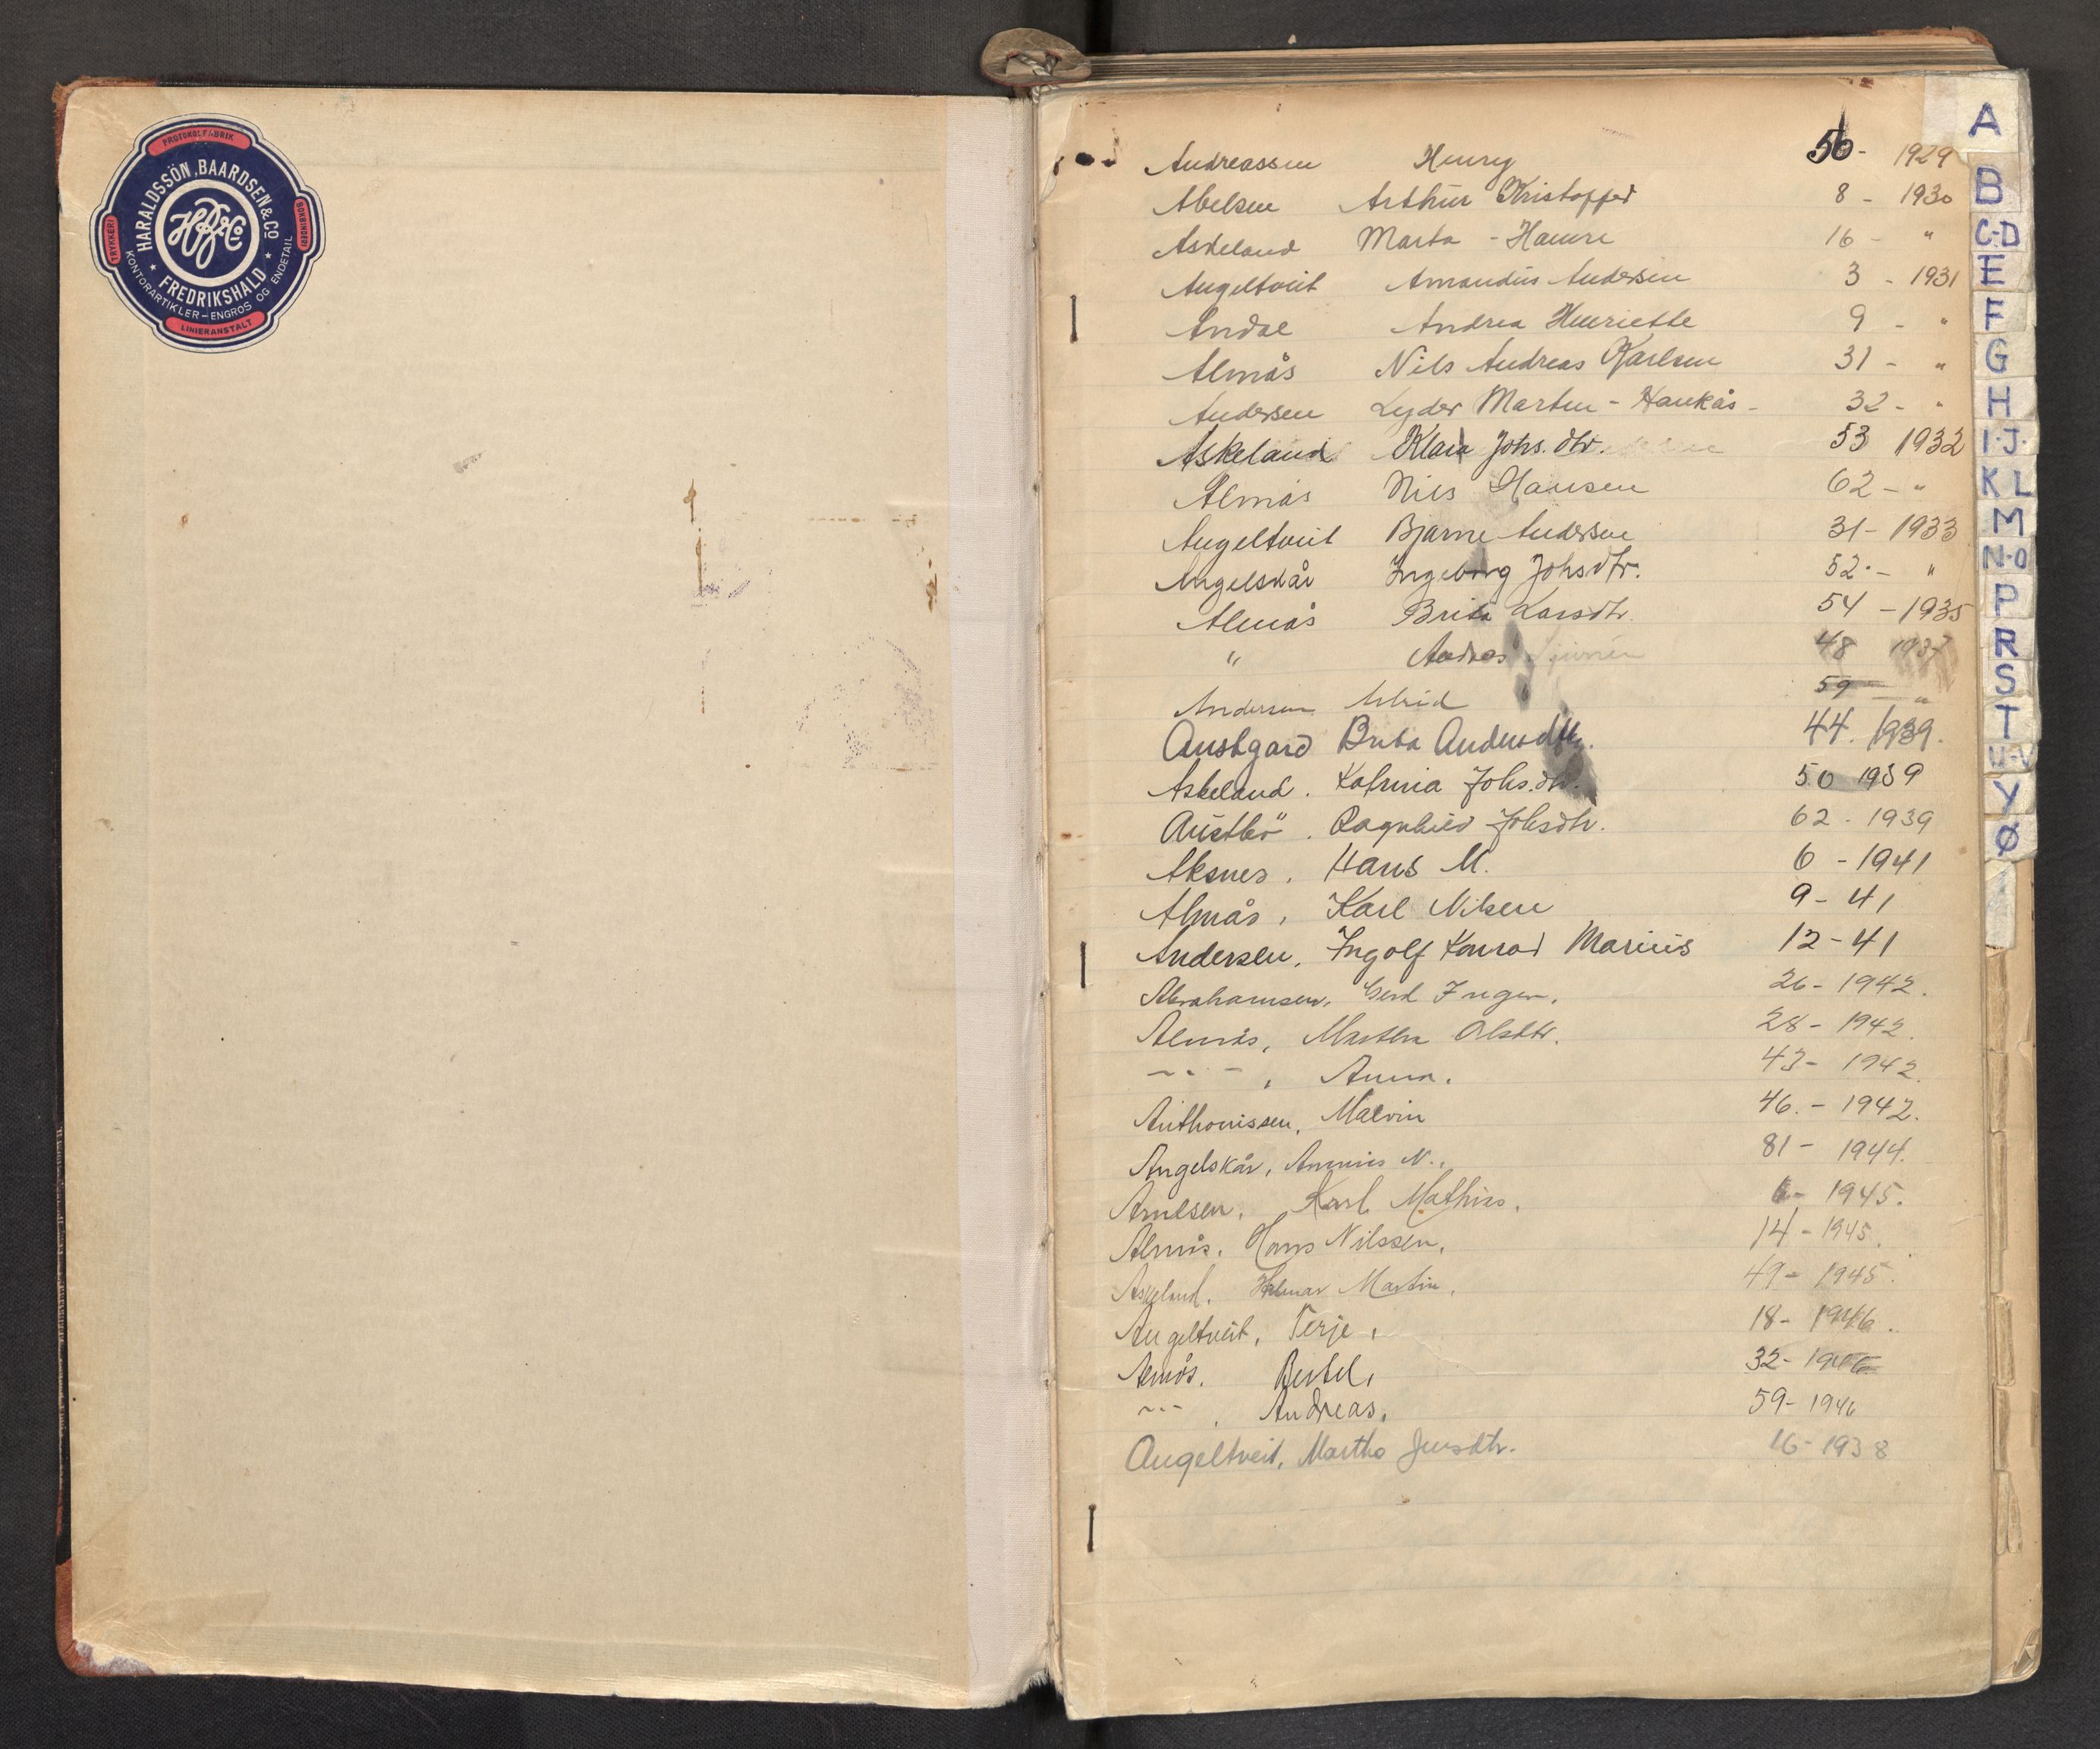 PROTOKOLFABRIK
HARALDSSÖN, BAARDSEN & Co
TRYKKERI
BOKBINDERI
HB&Co
FREDRIKSHALD
KONTORARTIKLER – ENGROS OG ENDETAIL
LINIERANSTALT
Andreassen Henry 56 - 1929
Abelsen Arthur Kristoffer 8 - 1930
Askeland Marta - Hamre 16 - "
Angeltveit Amandus Andersen 3 - 1931
Andal Andrea Henriette 9 - "
Almås Nils Andreas Karlsen 31 - "
Andersen Lyder Martin - Haukås - 32 - "
Askeland Klara Johs. dtr. 53 1932
Almås Nils Hansen 62 - "
Angeltveit Bjarne Andersen 31 - 1933
Angelskår Ingeborg Johsdtr. 52 - "
Almås Brita Larsdtr. 54 - 1935
" Andreas 48 1937
Andersen Astrid 59 - "
Austgard Brita Andersdtr. 44. 1939.
Askeland. Katrina Johs.dtr. 50 1939
Austbö. Ragnhild Johsdtr. 62 - 1939
Aksnes, Hans M. 6 - 1941
Almås, Karl Nilsen 9 - 41
Andersen, Ingolf Konrad Marius 12 - 41
Abrahamsen, Gerd Inger. 26 - 1942.
Almås, Martha Olsdtr. 28 - 1942.
- " - , Anna. 43 - 1942.
Anthonissen, Malvin 46. - 1942.
Angelskår, N. 81 - 1944.
Arnesen, Karl Mathias. 6 - 1945.
Almås, Hans Nilssen. 14 - 1945.
Askeland. Hilmar Martin. 49 - 1945.
Angeltveit, Terje, 18 - 1946.
Almås. Bertel, 32 - 1946
- " - , Andreas. 59 - 1946
Angeltveit, Martha Jensdtr. 16 - 1938
A
B
C-D
E
F
G
H
I-J
K L
M
N-O
P
R
S
T
U-V
Y
Ø